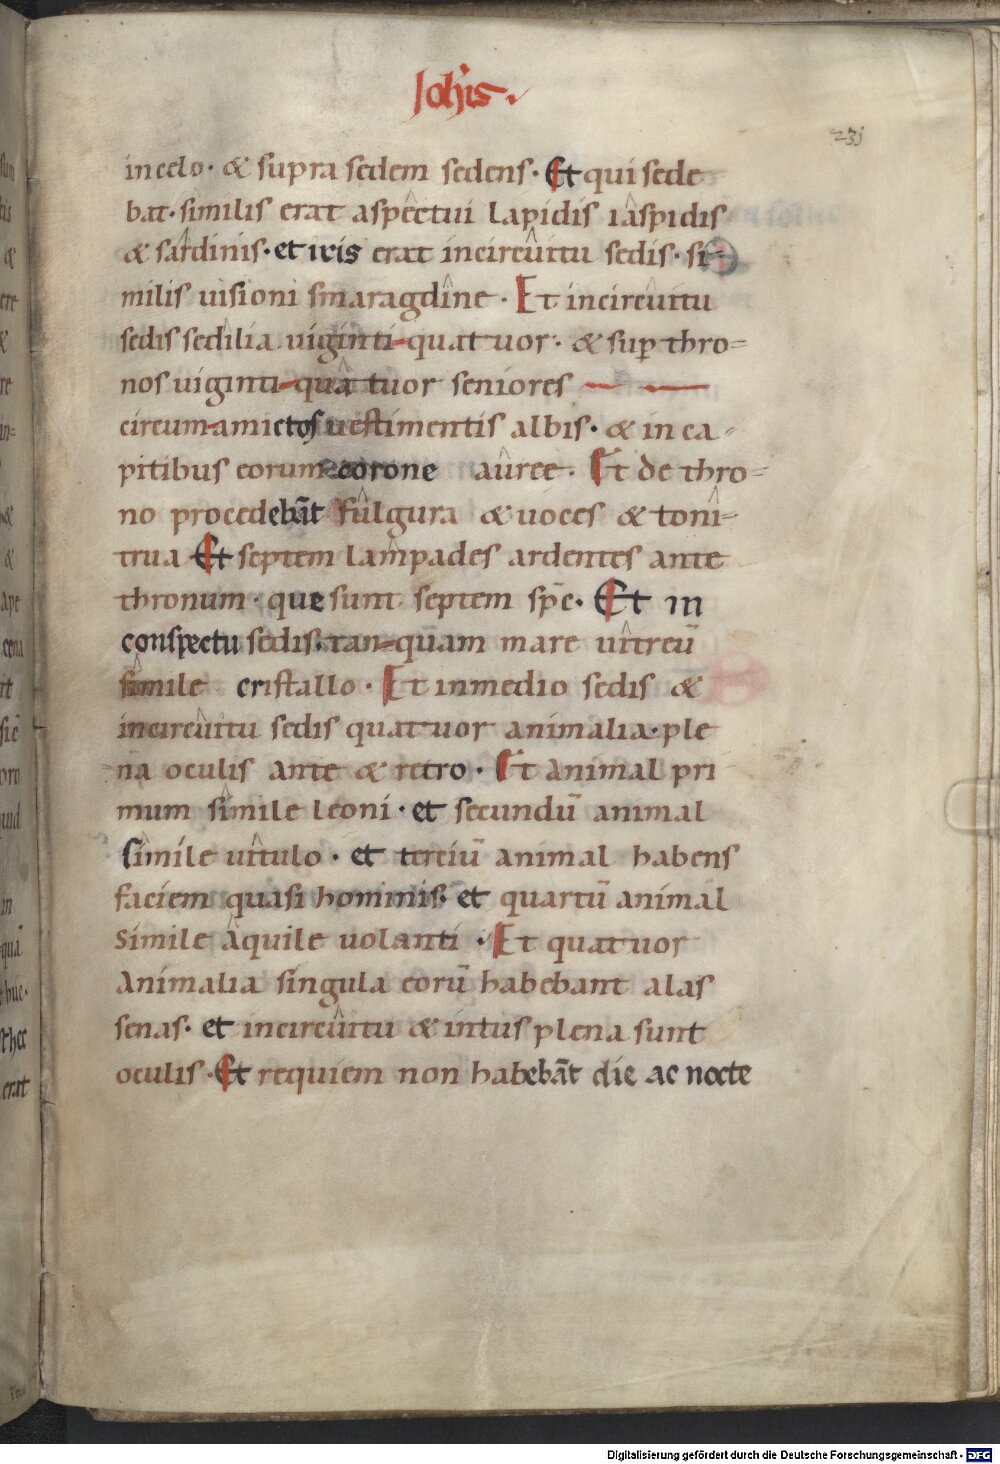 Joh̅is.
231
in celo · & supra sedem sedens · Et qui sede
bat · similis erat aspectui lapidis iaspidis
& sardinis · et iris erat in circuitu sedis · si-
milis uisioni smaragdine · Et in circuitu
sedis sedilia uiginti-quatuor · & sup̲ thro=
nos uiginti-quatuor seniores
circum-amictos uestimentis albis · & in ca-
pitibus eorum corone auree · Et de thro=
no procedeba̅t fulgura & uoces & toni=
trua Et septem lampades ardentes ante
thronum · que sunt septem sp̅c · Et in
conspectu sedis · tan-quam mare uitreu̅
simile cristallo · Et in medio sedis &
in circuitu sedis quatuor animalia · ple
na oculis ante & retro · Et animal pri
mum simile leoni · et secundu̅ animal
simile uitulo · et terciu̅ animal habens
faciem quasi hominis · et quartu̅ animal
simile aquile uolanti · Et quatuor
Animalia singula eoru̅ habebant alas
senas · et in circuitu & intus plena sunt
oculis · Et requiem non habeba̅t die ac nocte
Digitalisierung gefördert durch die Deutsche Forschungsgemeinschaft - DFG